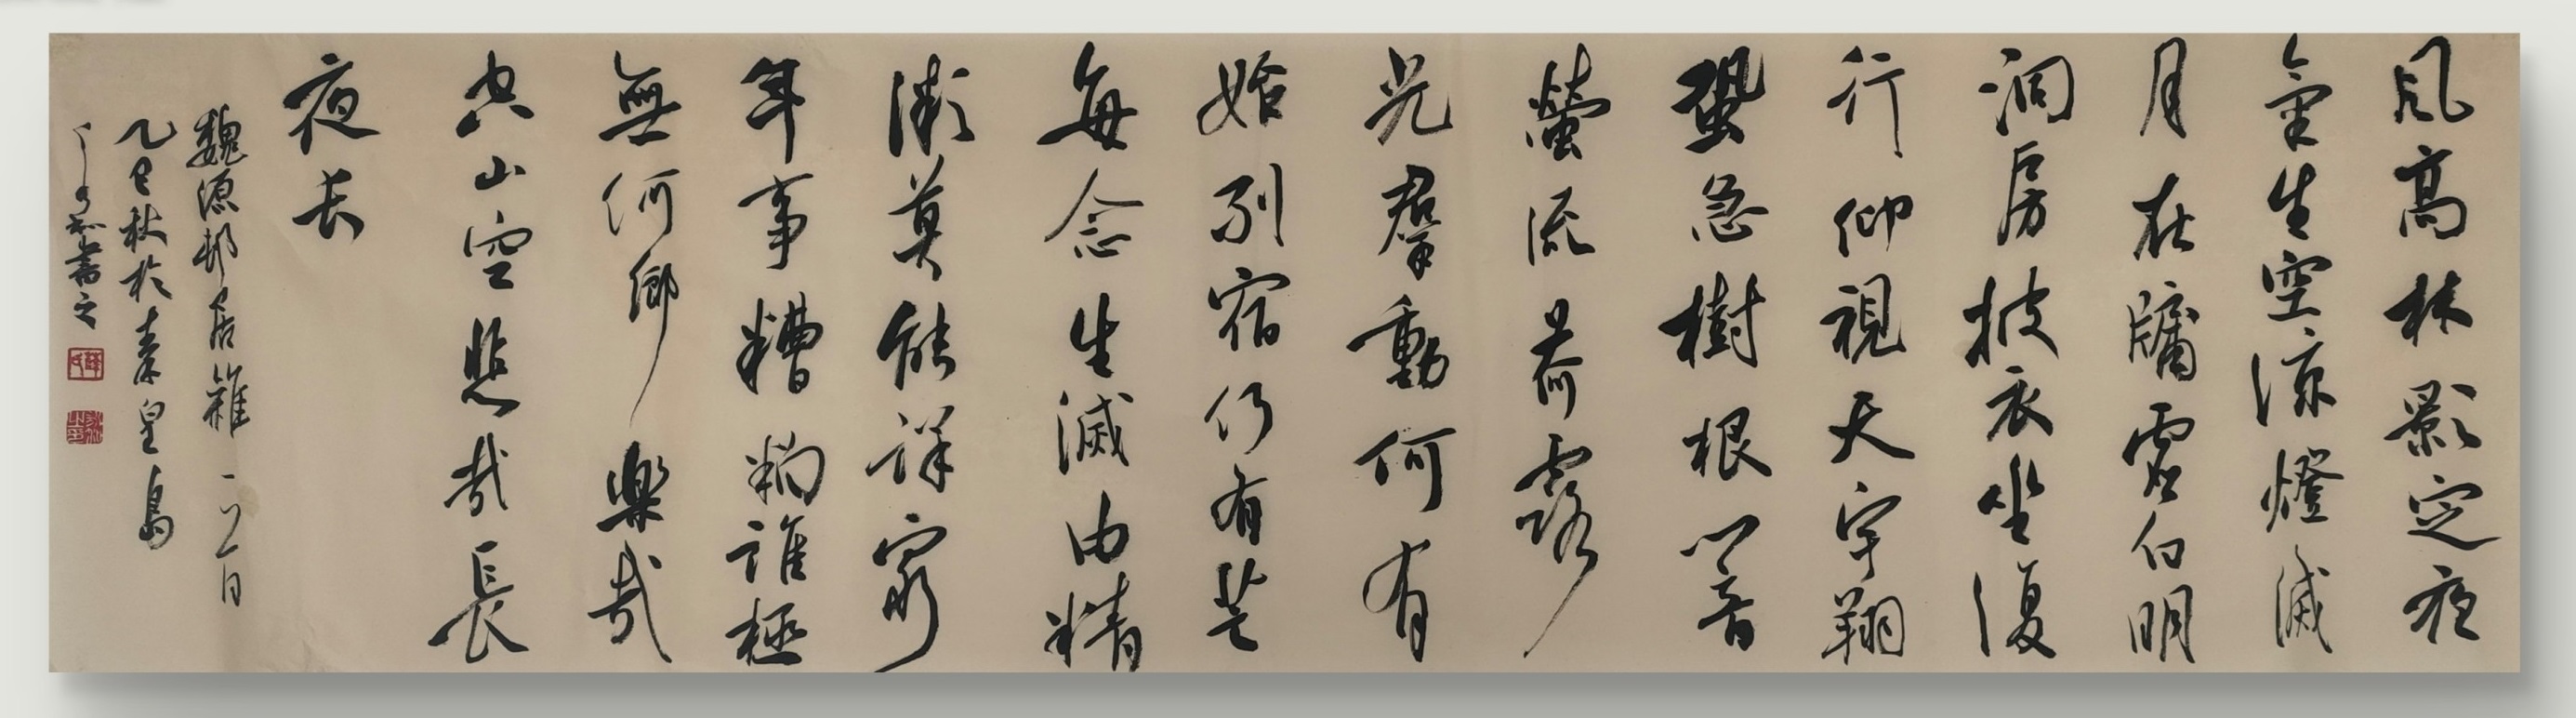 風高林影定夜
氣生空涼燈滅
月在牖虛白明
洞房披衣坐復
行仰視天宇翔
蛩急樹根響
螢流荷露
光羣動何有
始列宿仍有芒
每念生滅由精
微莫能詳窮
年事糟粕誰極
無何鄉樂哉
空山空悲哉長
夜長
魏源邨居雜
乙巳秋於秦皇島
書之